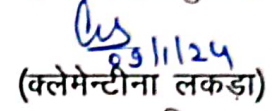 09/1/24
(क्लेमेन्टीना लकड़ा)